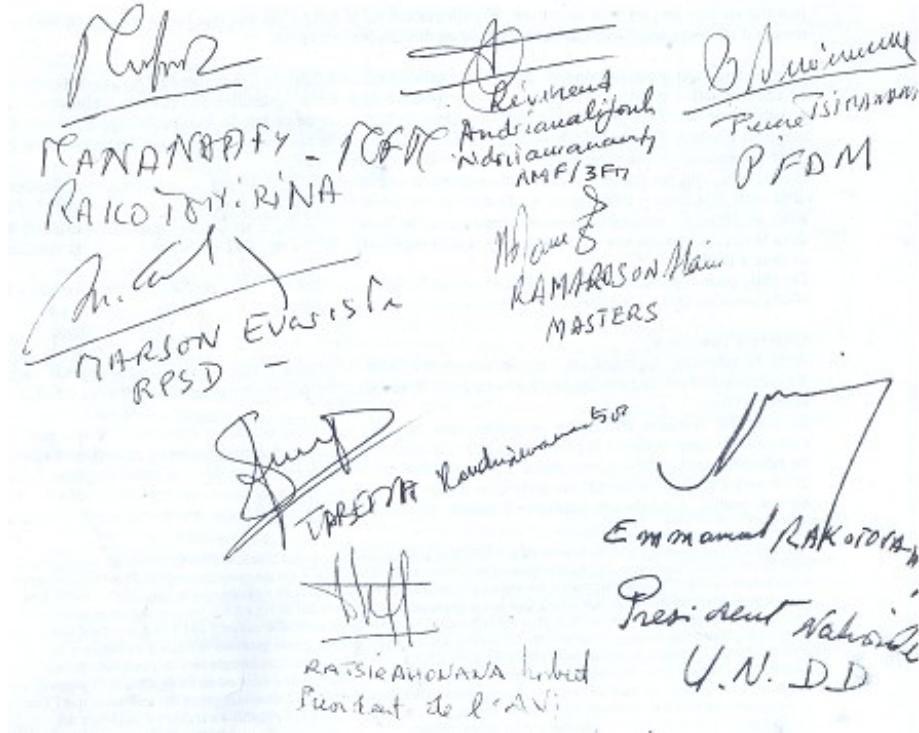 MANANDAFY - MFM
RAKOTONIRINA
Révérend
Andrianalijohn
Ndriamanampy
AMF/3FM
Pierre TSIRANANA
PFDM
MARSON Evariste
RPSD -
RAMAROSON Alain
MASTERS
TABERA Randriamanantsoa
Emmanuel RAKOTOVA
President National
U.N.DD
RATSIRAHONANA Norbert
President de l'AVI